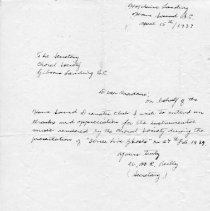 Landing
Howe Sound B.C.
April 15th / 1939
The Secretary
Choral Society
Gibsons Landing B.C.
Dear Madam:
On behalf of the
Howe Sound Dramatic Club I wish to extend our
thanks and appreciation for the instrumental
music rendered by the Choral Society during the
presentation of "Three Live Ghosts" on 27th Feb. 1939.
Yours truly
(Secretary)